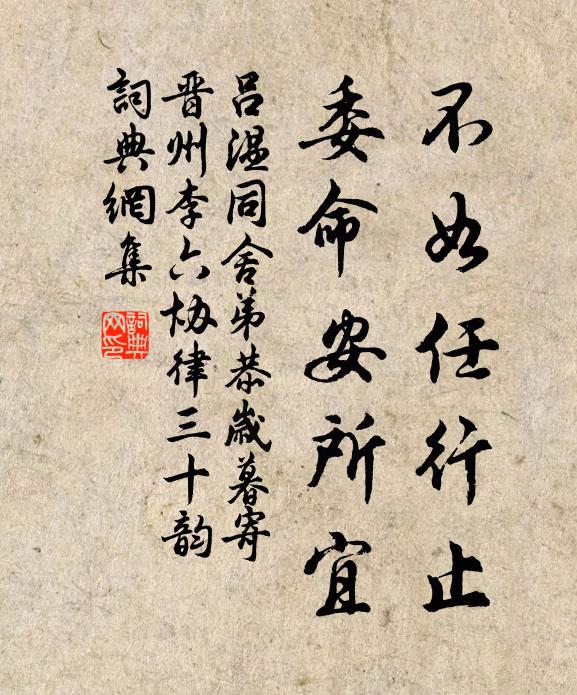 不如任行止
委命安所宜
吕温同舍弟恭歲暮寄
晋州李六協律三十韵
詞典網集
詞典
网印